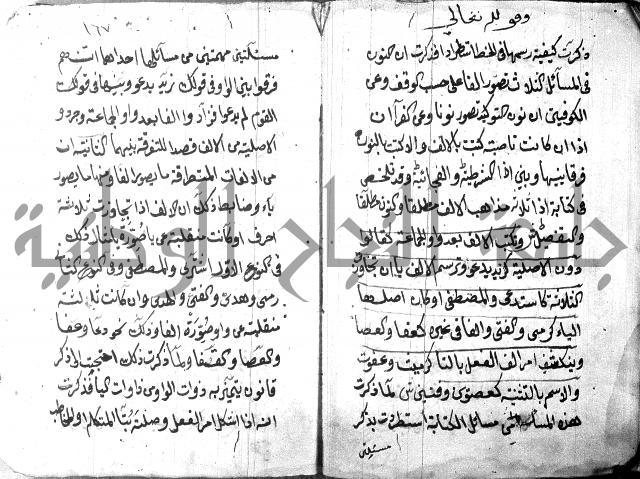 وقولـه تعالى
ذكرت كيفية رسمها في الخط استطرادا فذكرت ان النون
في المسائل الثلاث تصور الفا على حسب الوقف وعن
الكوفيين ان نون التوكيد تصور نونا وعن الفرا ان
اذا ان كانت ناصبة كتبت بالالف والا كتبت بالنون
فرقا بينها وبين اذا الشرطية والفجائية وقد تلخص
في كتابة اذا ثلاثة مذاهب الالف مطلقا والنون مطلقا
والتفصيل ص وتكتب الالف بعد واو الجماعة كقالوا
دون الاصلية كزيد يدعو وترسم الالف يا ان تجاوزت
الثلاثة كاستدعى والمصطفى او كان اصلها
الياء كرمى والفتى والفا في غيره كعفا والعصا
وينكشف امر الف الفعل بالتا كرميت وعفوت
والاسم بالتثنية كعصوين وفتيين ش لما ذكرت
هذه المسئلة من مسائل الكتابة استطردت بذكر
مسئلتين
١٦٧
مسئلتين مهمتين من مسائلها احداهما انهم
فرقوا بين الواو في قولك زيد يدعو وبينها في قولك
القوم لم يدعوا فزادوا الفا بعد واو الجماعة وجردوا
الاصلية من الالف قصدا للتفرقة بينهما الثانية ان
من الالفات المتطرفة ما يصور الفا ومنها ما يصور
ياء وضابط ذلك ان الالف اذا تجاوزت ثلاثة
احرف او كانت منقلبة عن يا صورت يا مثال ذلك
في النوع الاول اشترى والمصطفى وفي النوع الثاني
رمى وهدى والفتى والهدى وان كانت ثالثة
منقلبة عن واو صورت الفا وذلك نحو دعا وعفا
والعصا والقفا ولما ذكرت ذلك احتجت الى ذكر
قانون يتميز به ذوات الواو من ذوات اليا فذكرت
انه اذا اشكل امر الفعل وصلته بتا المتكلم او المخاطب
جامعة النجاح الوطنية